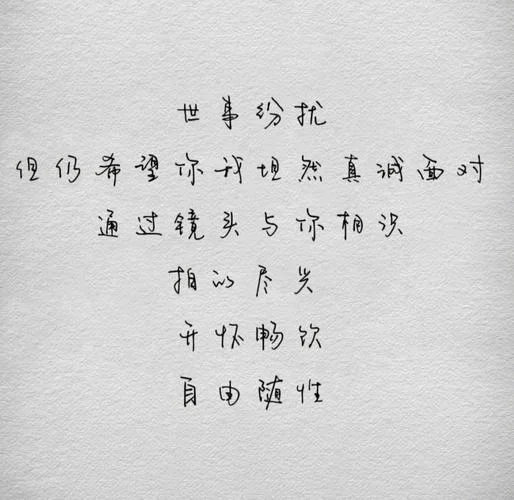 世事纷扰
但仍希望你我坦然真诚面对
通过镜头与你相识
拍的尽兴
开怀畅饮
自由随性